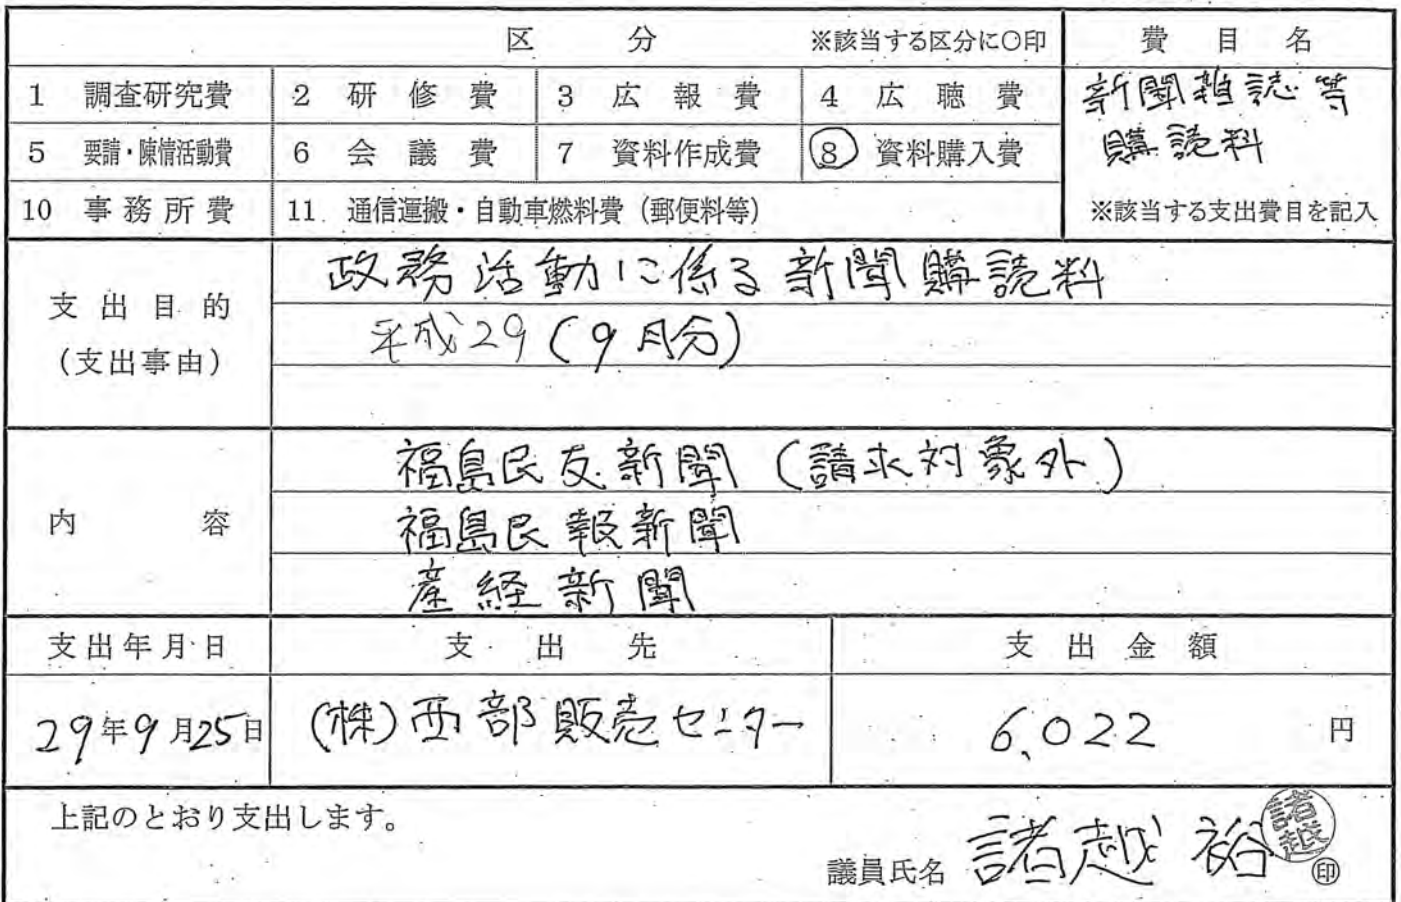 区 分 ※該当する区分に○印 費 目 名
1 調査研究費 2 研 修 費 3 広 報 費 4 広 聴 費 新聞雑誌等
5 要請・陳情活動費 6 会 議 費 7 資料作成費 8 資料購入費 購読料
10 事務所費 11 通信運搬・自動車燃料費(郵便料等) ※該当する支出費目を記入
支出目的
(支出事由)
政務活動に係る新聞購読料
平成29(9月分)
内 容
福島民友新聞(請求対象外)
福島民報新聞
産経新聞
支出年月日 支 出 先 支 出 金 額
29年9月25日 (株)西部販売センター 6,022 円
上記のとおり支出します。
議員氏名 諸越 裕 諸越 印